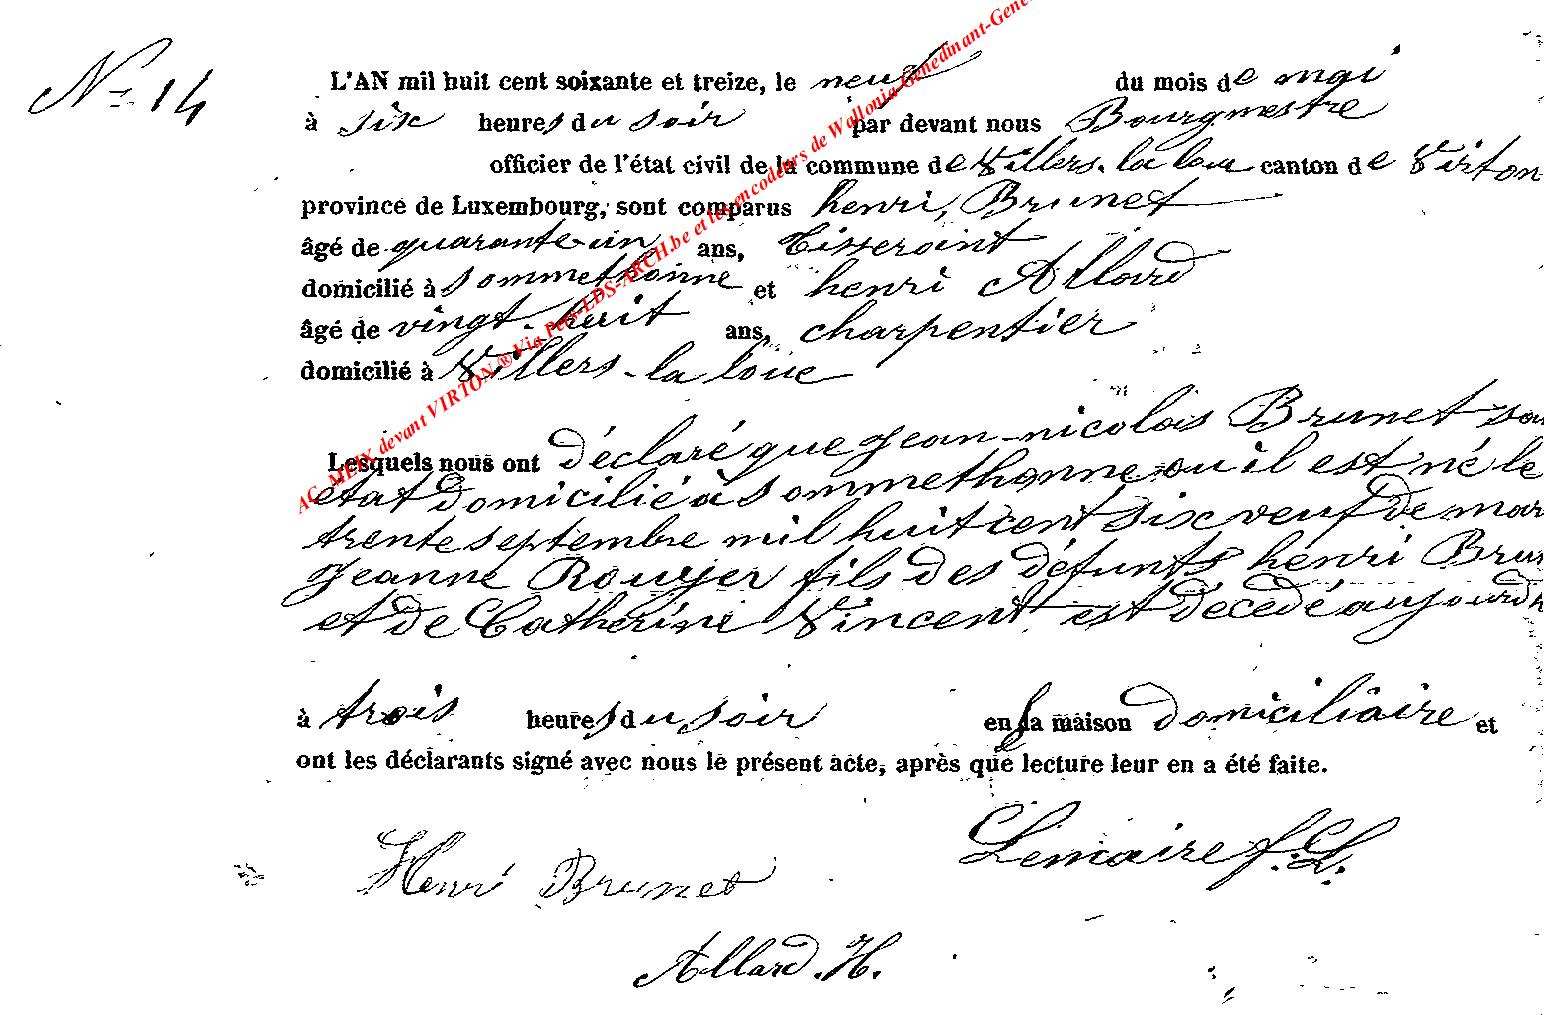 N° 14
L'AN mil huit cent soixante et treize, le neuf du mois de mai
à six heures du soir par devant nous Bourgmestre
officier de l'état civil de la commune de Villers-la-loue canton de Virton
province de Luxembourg, sont comparus henri, Brunet
âgé de quarante-un ans, tisseraint
domicilié à Sommethonne et henri Allard
âgé de vingt-huit ans, charpentier
domicilié à Villers-la loue
Lesquels nous ont déclaré que jean-nicolas Brunet
état domicilié à Sommethonne ou il est né le
trente septembre mil huit cent six veuf de
jeanne Rouyer fils des défunts henri Brun
et de Catherine Vincent est décedé aujourdh
à trois heures du soir en sa maison domiciliàire et
ont les déclarants signé avec nous le présent acte, après que lecture leur en a été faite.
Lemaire f. L.
Henri Brunet
Allard. H.
AC-MEIX devant VIRTON ® Via Pers-LDS-ARCH.be et les encodeurs de Wallonia-Genedinant-Gene